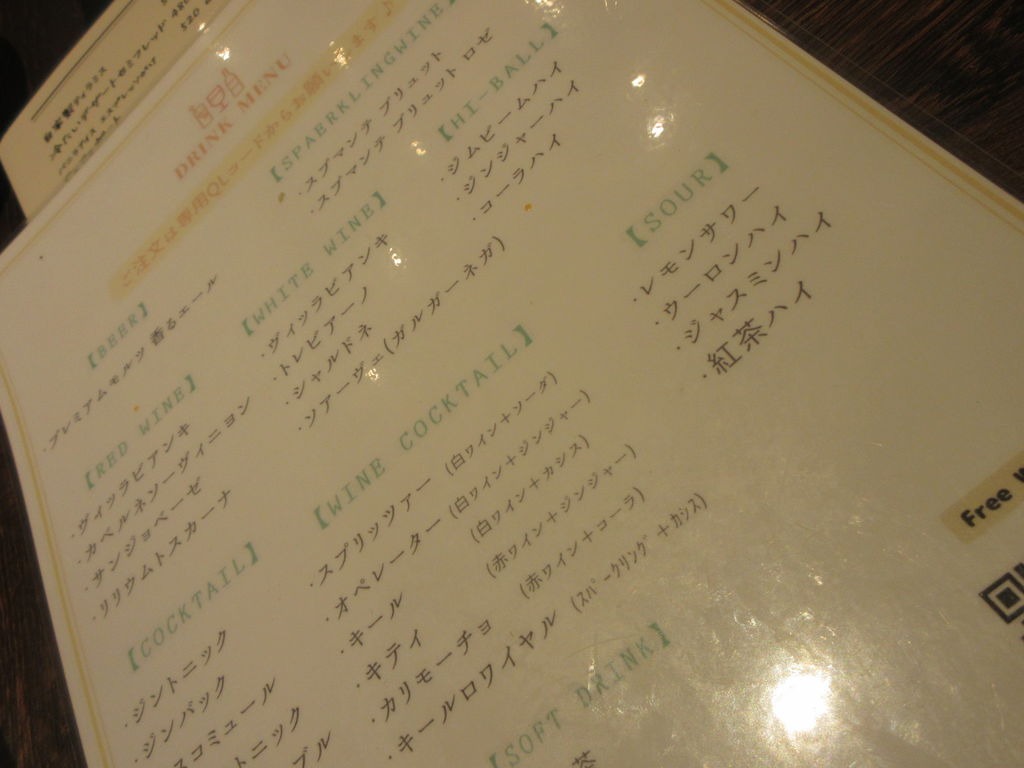 DRINK MENU
ご注文は専用QLコードからお願いします♪
【BEER】
・プレミアムモルツ 香るエール
【RED WINE】
・ヴィッラビアンキ
・カベルネソーヴィニヨン
・サンジョベーゼ
・リリウムトスカーナ
【COCKTAIL】
・ジントニック
・ジンバック
スコミュール
トニック
ブル
【SPAERKLINGWINE】
・スプマンテ ブリュット
・スプマンテ ブリュット ロゼ
【WHITE WINE】
・ヴィッラビアンキ
・トレビアーノ
・シャルドネ
・ソアーヴェ(ガルガーネガ)
【WINE COCKTAIL】
・スプリッツァー (白ワイン+ソーダ)
・オペレーター (白ワイン+ジンジャー)
・キール (白ワイン+カシス)
・キティ (赤ワイン+ジンジャー)
・カリモーチョ (赤ワイン+コーラ)
・キールロワイヤル (スパークリング+カシス)
【SOFT DRINK】
茶
【HI-BALL】
・ジムビームハイ
・ジンジャーハイ
・コーラハイ
【SOUR】
・レモンサワー
・ウーロンハイ
・ジャスミンハイ
・紅茶ハイ
Free